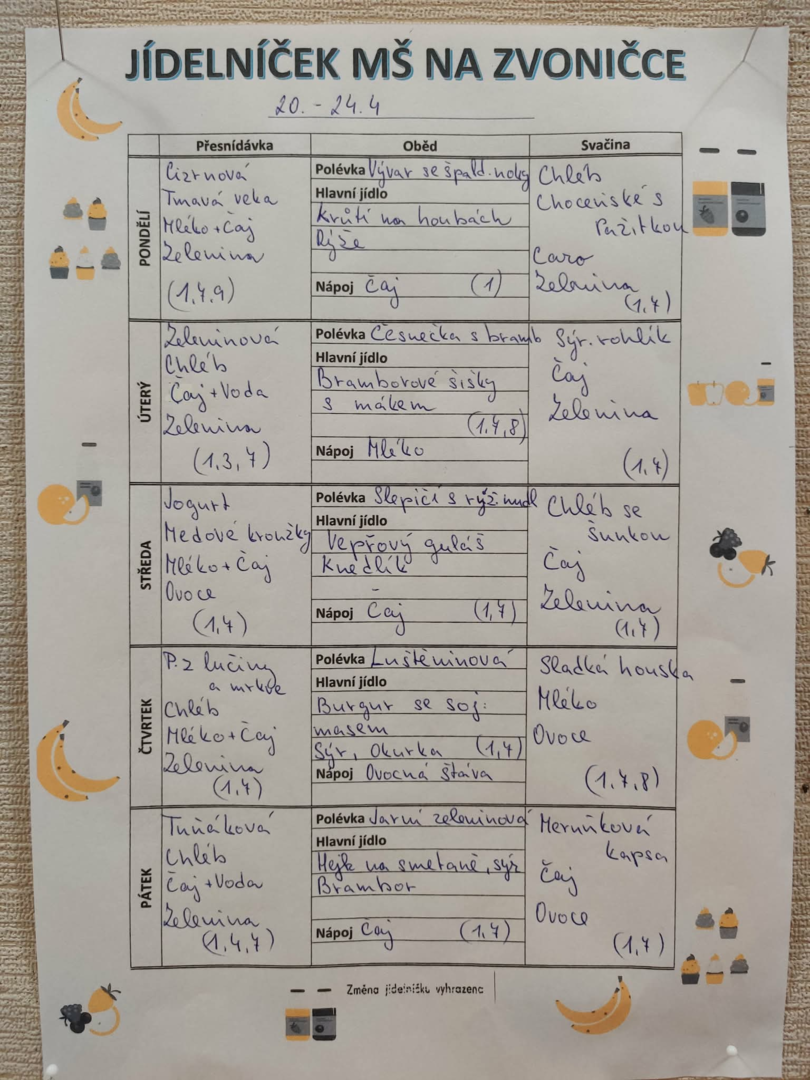 JÍDELNÍČEK MŠ NA ZVONIČCE
20. - 24.4
Přesnídávka
Oběd
Svačina
PONDĚLÍ
Cizrnová
Tmavá veka
Mléko + Čaj
Zelenina
(1,7,9)
Polévka Vývar se špald. noky
Hlavní jídlo
Krůtí na houbách
Rýže
Nápoj Čaj (1)
Chléb
Choceňské s
Pažitkou
Caro
Zelenina
(1,7)
ÚTERÝ
Zeleninová
Chléb
Čaj + Voda
Zelenina
(1,3,7)
Polévka Česnečka s bramb
Hlavní jídlo
Bramborové šišky
s mákem
(1,7,8)
Nápoj Mléko
Sýr. rohlík
Čaj
Zelenina
(1,7)
STŘEDA
Jogurt
Medové kroužky
Mléko + Čaj
Ovoce
(1,7)
Polévka Slepičí s rýž. nudl
Hlavní jídlo
Vepřový guláš
Knedlík
Nápoj Čaj (1,7)
Chléb se
Šunkou
Čaj
Zelenina
(1,7)
ČTVRTEK
P. z lučiny
a mrkve
Chléb
Mléko + Čaj
Zelenina
(1,7)
Polévka Luštěninová
Hlavní jídlo
Burgur se soj.
masem
Sýr, Okurka (1,7)
Nápoj Ovocná šťáva
Sladká houska
Mléko
Ovoce
(1,7,8)
PÁTEK
Tuňáková
Chléb
Čaj + Voda
Zelenina
(1,4,7)
Polévka Jarní zeleninová
Hlavní jídlo
Hejk na smetaně, sýr
Brambor
Nápoj Čaj (1,7)
Meruňková
kapsa
Čaj
Ovoce
(1,7)
Změna jídelníčku vyhrazena